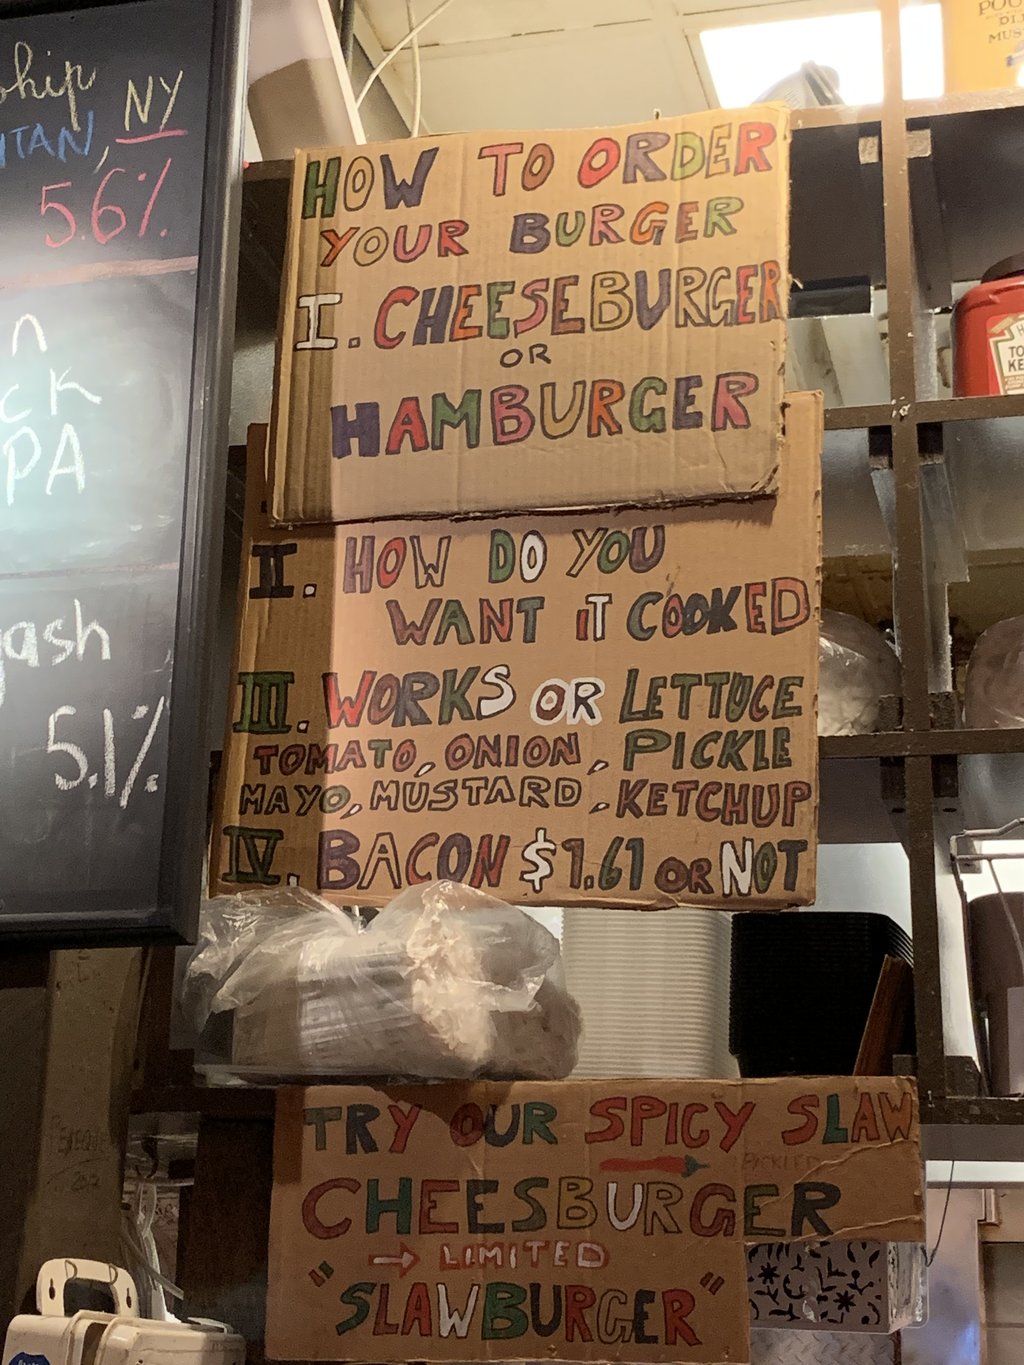 NY
5.6%
PA
5.1%
HOW TO ORDER
YOUR BURGER
I. CHEESEBURGER
OR
HAMBURGER
II. HOW DO YOU
WANT IT COOKED
III. WORKS OR LETTUCE
TOMATO, ONION, PICKLE
MAYO, MUSTARD, KETCHUP
IV. BACON $1.61 OR NOT
TRY OUR SPICY SLAW
PICKLED
CHEESBURGER
→ LIMITED
"SLAWBURGER"